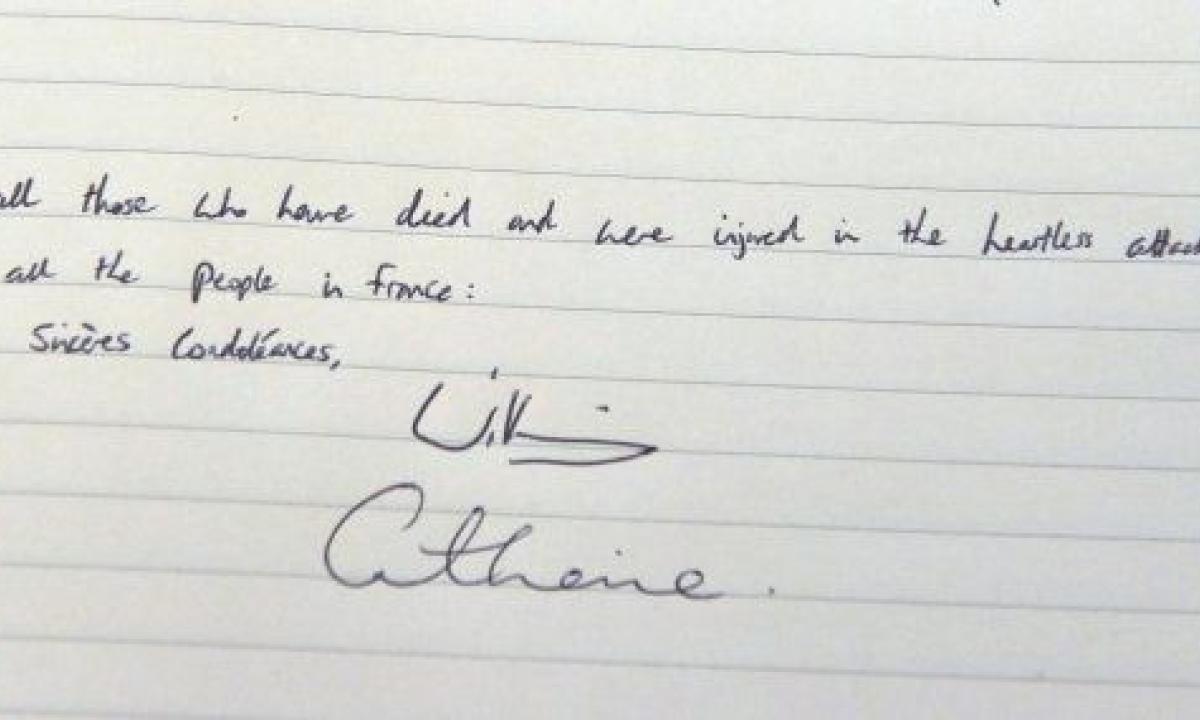 all those who have died and were injured in the heartless attack
all the people in France:
Sincères Condoléances,
William
Catherine.